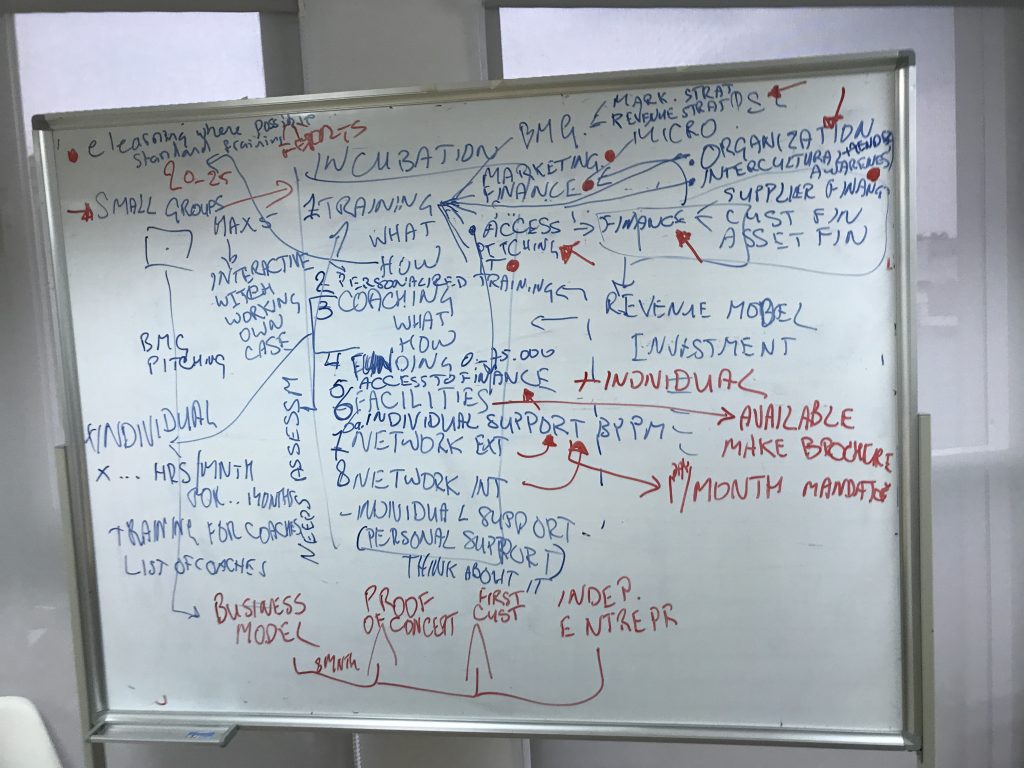 elearning where possible
standard training
20-25
SMALL GROUPS
MAX 5
INTERACTIVE
WORKING
OWN
CASE
BMC
PITCHING
INDIVIDUAL
X ... HRS/MNTH
FOR ... MONTHS
TRAINING FOR COACHES
LIST OF COACHES
NEEDS ASSESSM
INCUBATION
1 TRAINING
WHAT
HOW
2 PERSONALIZED TRAINING
3 COACHING
WHAT
HOW
4 FUNDING 0-25.000
5 ACCESS TO FINANCE
6 FACILITIES
INDIVIDUAL SUPPORT BPPM
7 NETWORK EXT
8 NETWORK INT
- INDIVIDUAL SUPPORT
(PERSONAL SUPPORT)
THINK ABOUT IT
BMG
MARK. STRAT
REVENUE STRAT
MICRO
MARKETING
FINANCE
ORGANIZATION
INTERCULTURAL
AWARENESS
SUPPLIER FINANC
ACCESS → FINANCE
CUST FIN
ASSET FIN
PITCHING
REVENUE MODEL
INVESTMENT
+ INDIVIDUAL
AVAILABLE
MAKE BROCHURE
/MONTH MANDATOR
BUSINESS
MODEL
PROOF
OF CONCEPT
FIRST
CUST
INDEP.
ENTREPR
8 MNTH